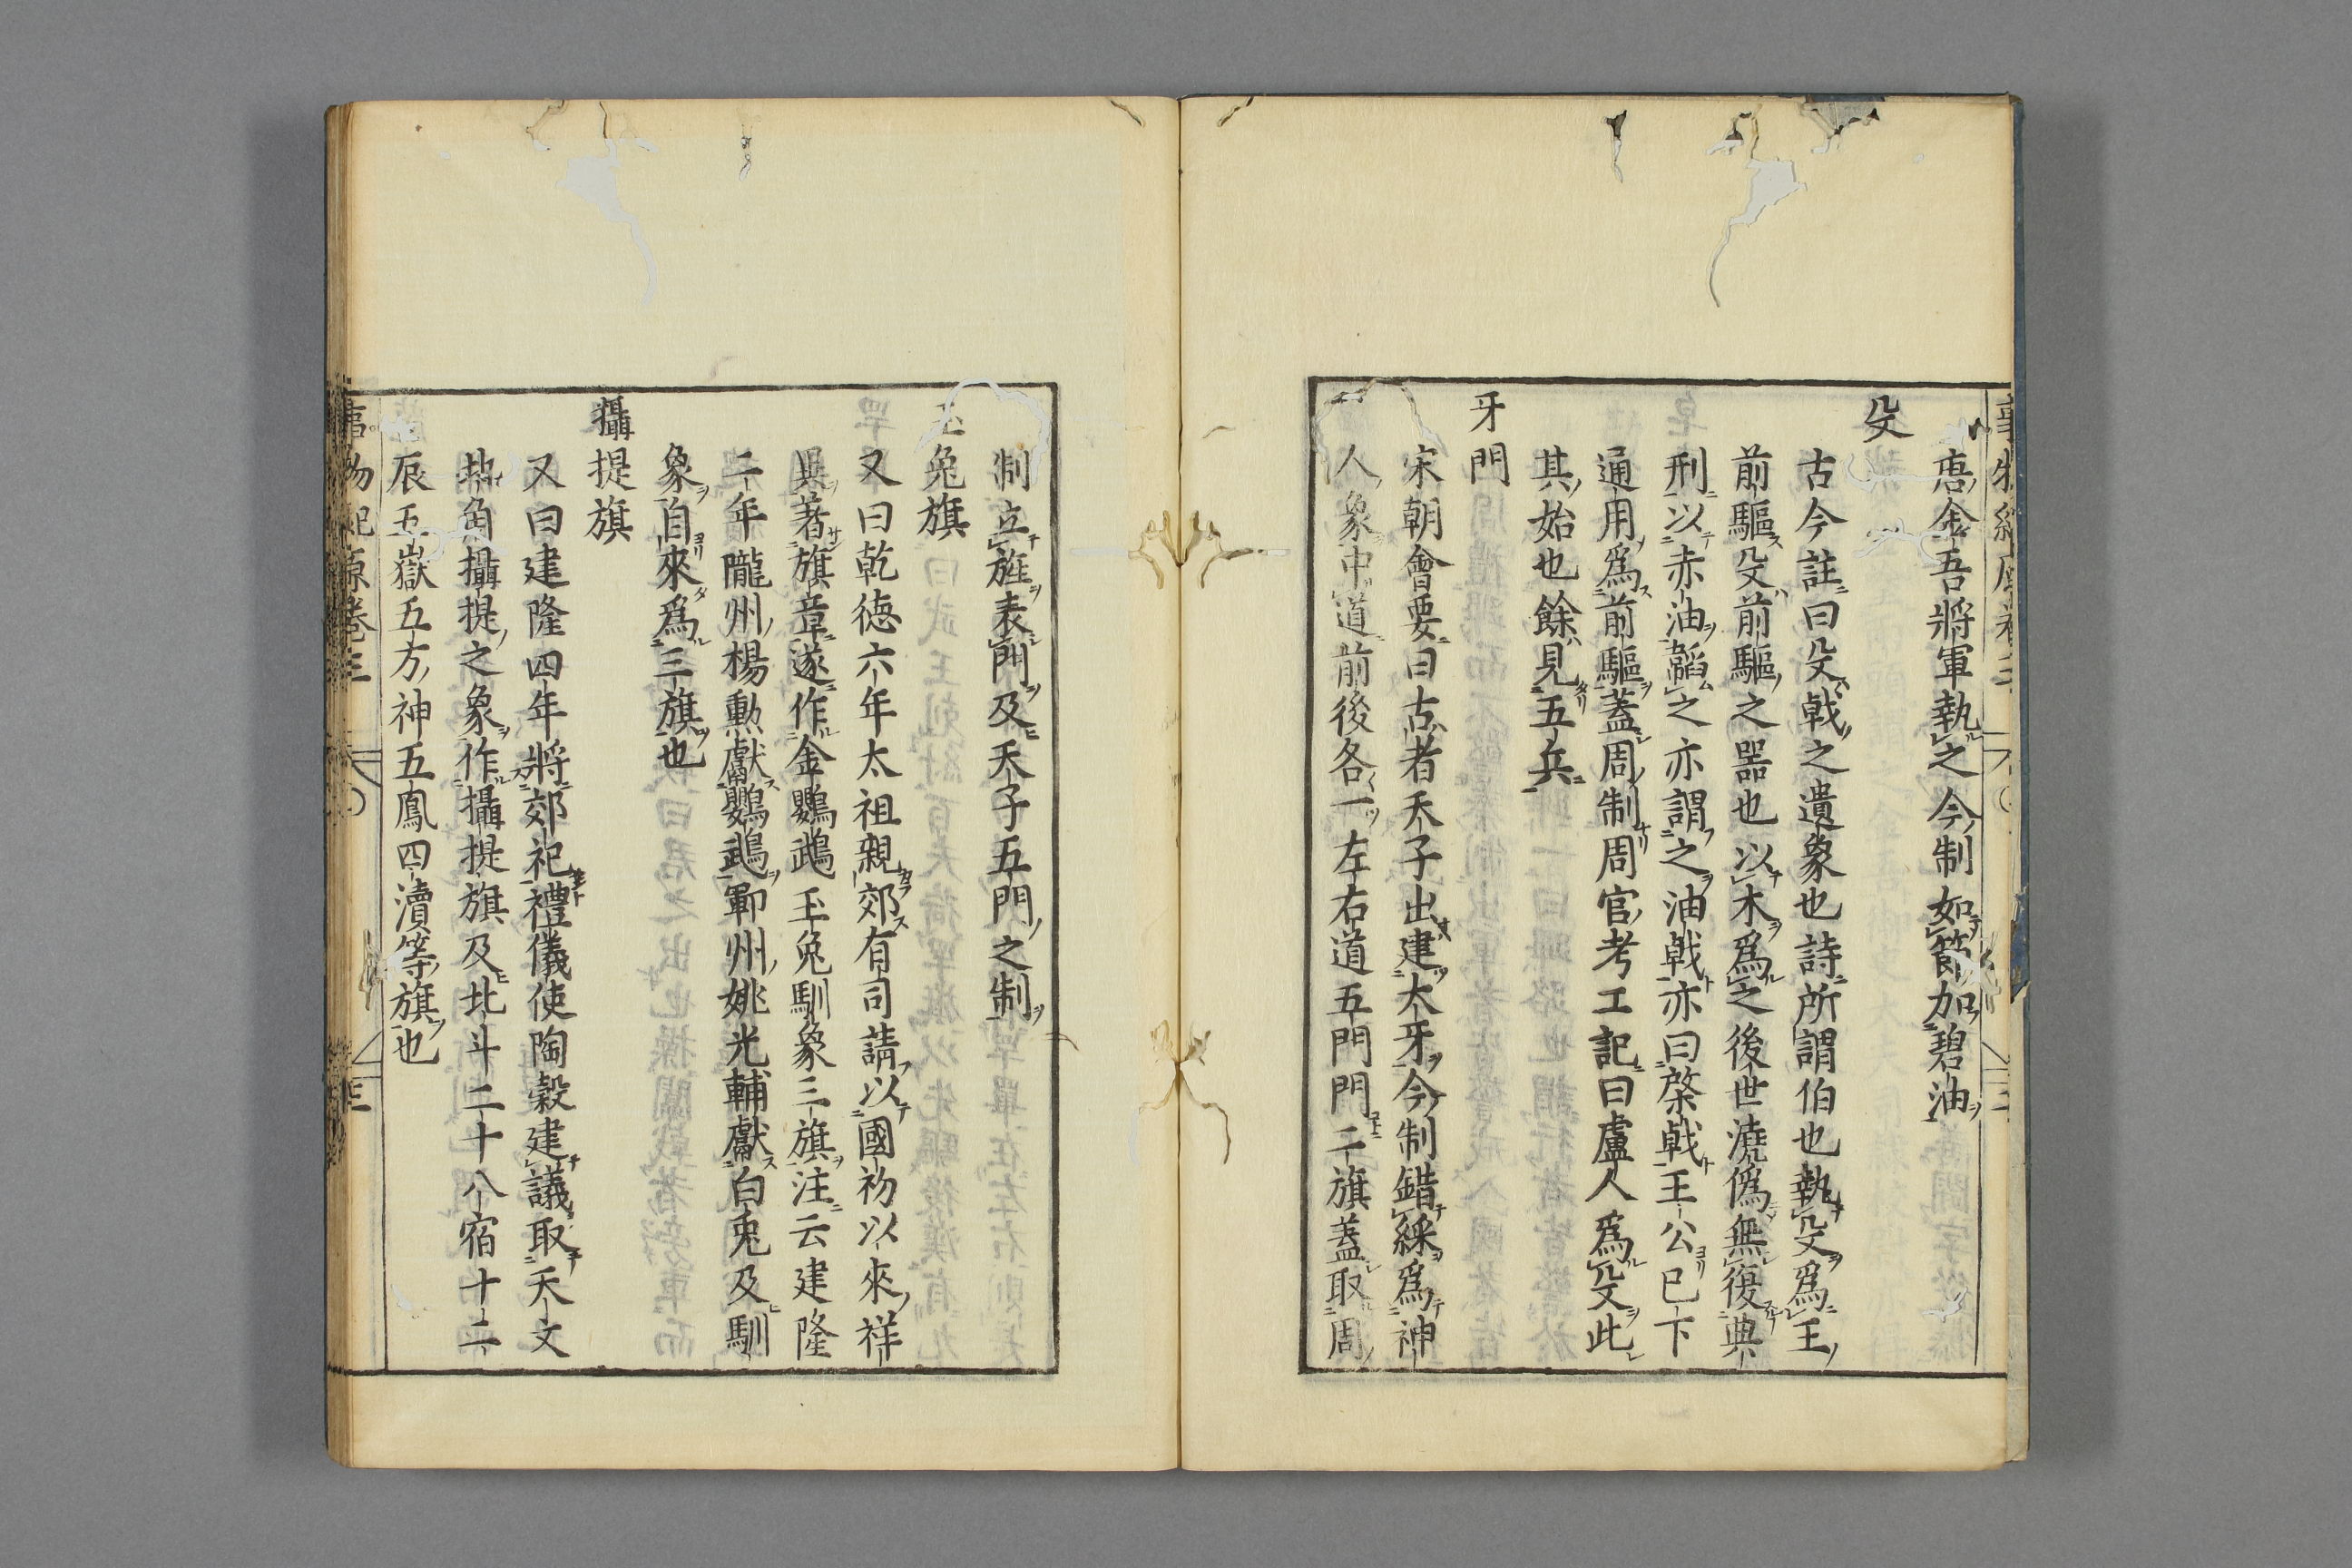 唐金吾將軍執之今制如節加碧油
殳
古今註曰殳戟之遺象也詩所謂伯也執殳爲王
前驅殳前驅之器也以木爲之後世澆僞無復典
刑以赤油韜之亦謂之油戟亦曰棨戟王公已下
通用爲前驅蓋周制周官考工記曰廬人爲殳此
其始也餘見五兵
牙門
宋朝會要曰古者天子出建大牙今制錯綵爲神
人象中道前後各一左右道五門門二旗蓋取周
制立旌表門及天子五門之制
玉兔旗
又曰乾德六年太祖親郊有司請以國初以來祥
異著旗章遂作金鸚鵡玉兔馴象三旗注云建隆
二年隴州楊勲獻鸚鵡鄆州姚光輔獻白兎及馴
象自來爲三旗也
攝提旗
又曰建隆四年將郊祀禮儀使陶穀建議取天文
大角攝提之象作攝提旗及北斗二十八宿十二
辰五嶽五方神五鳳四瀆等旗也
事物紀原卷三